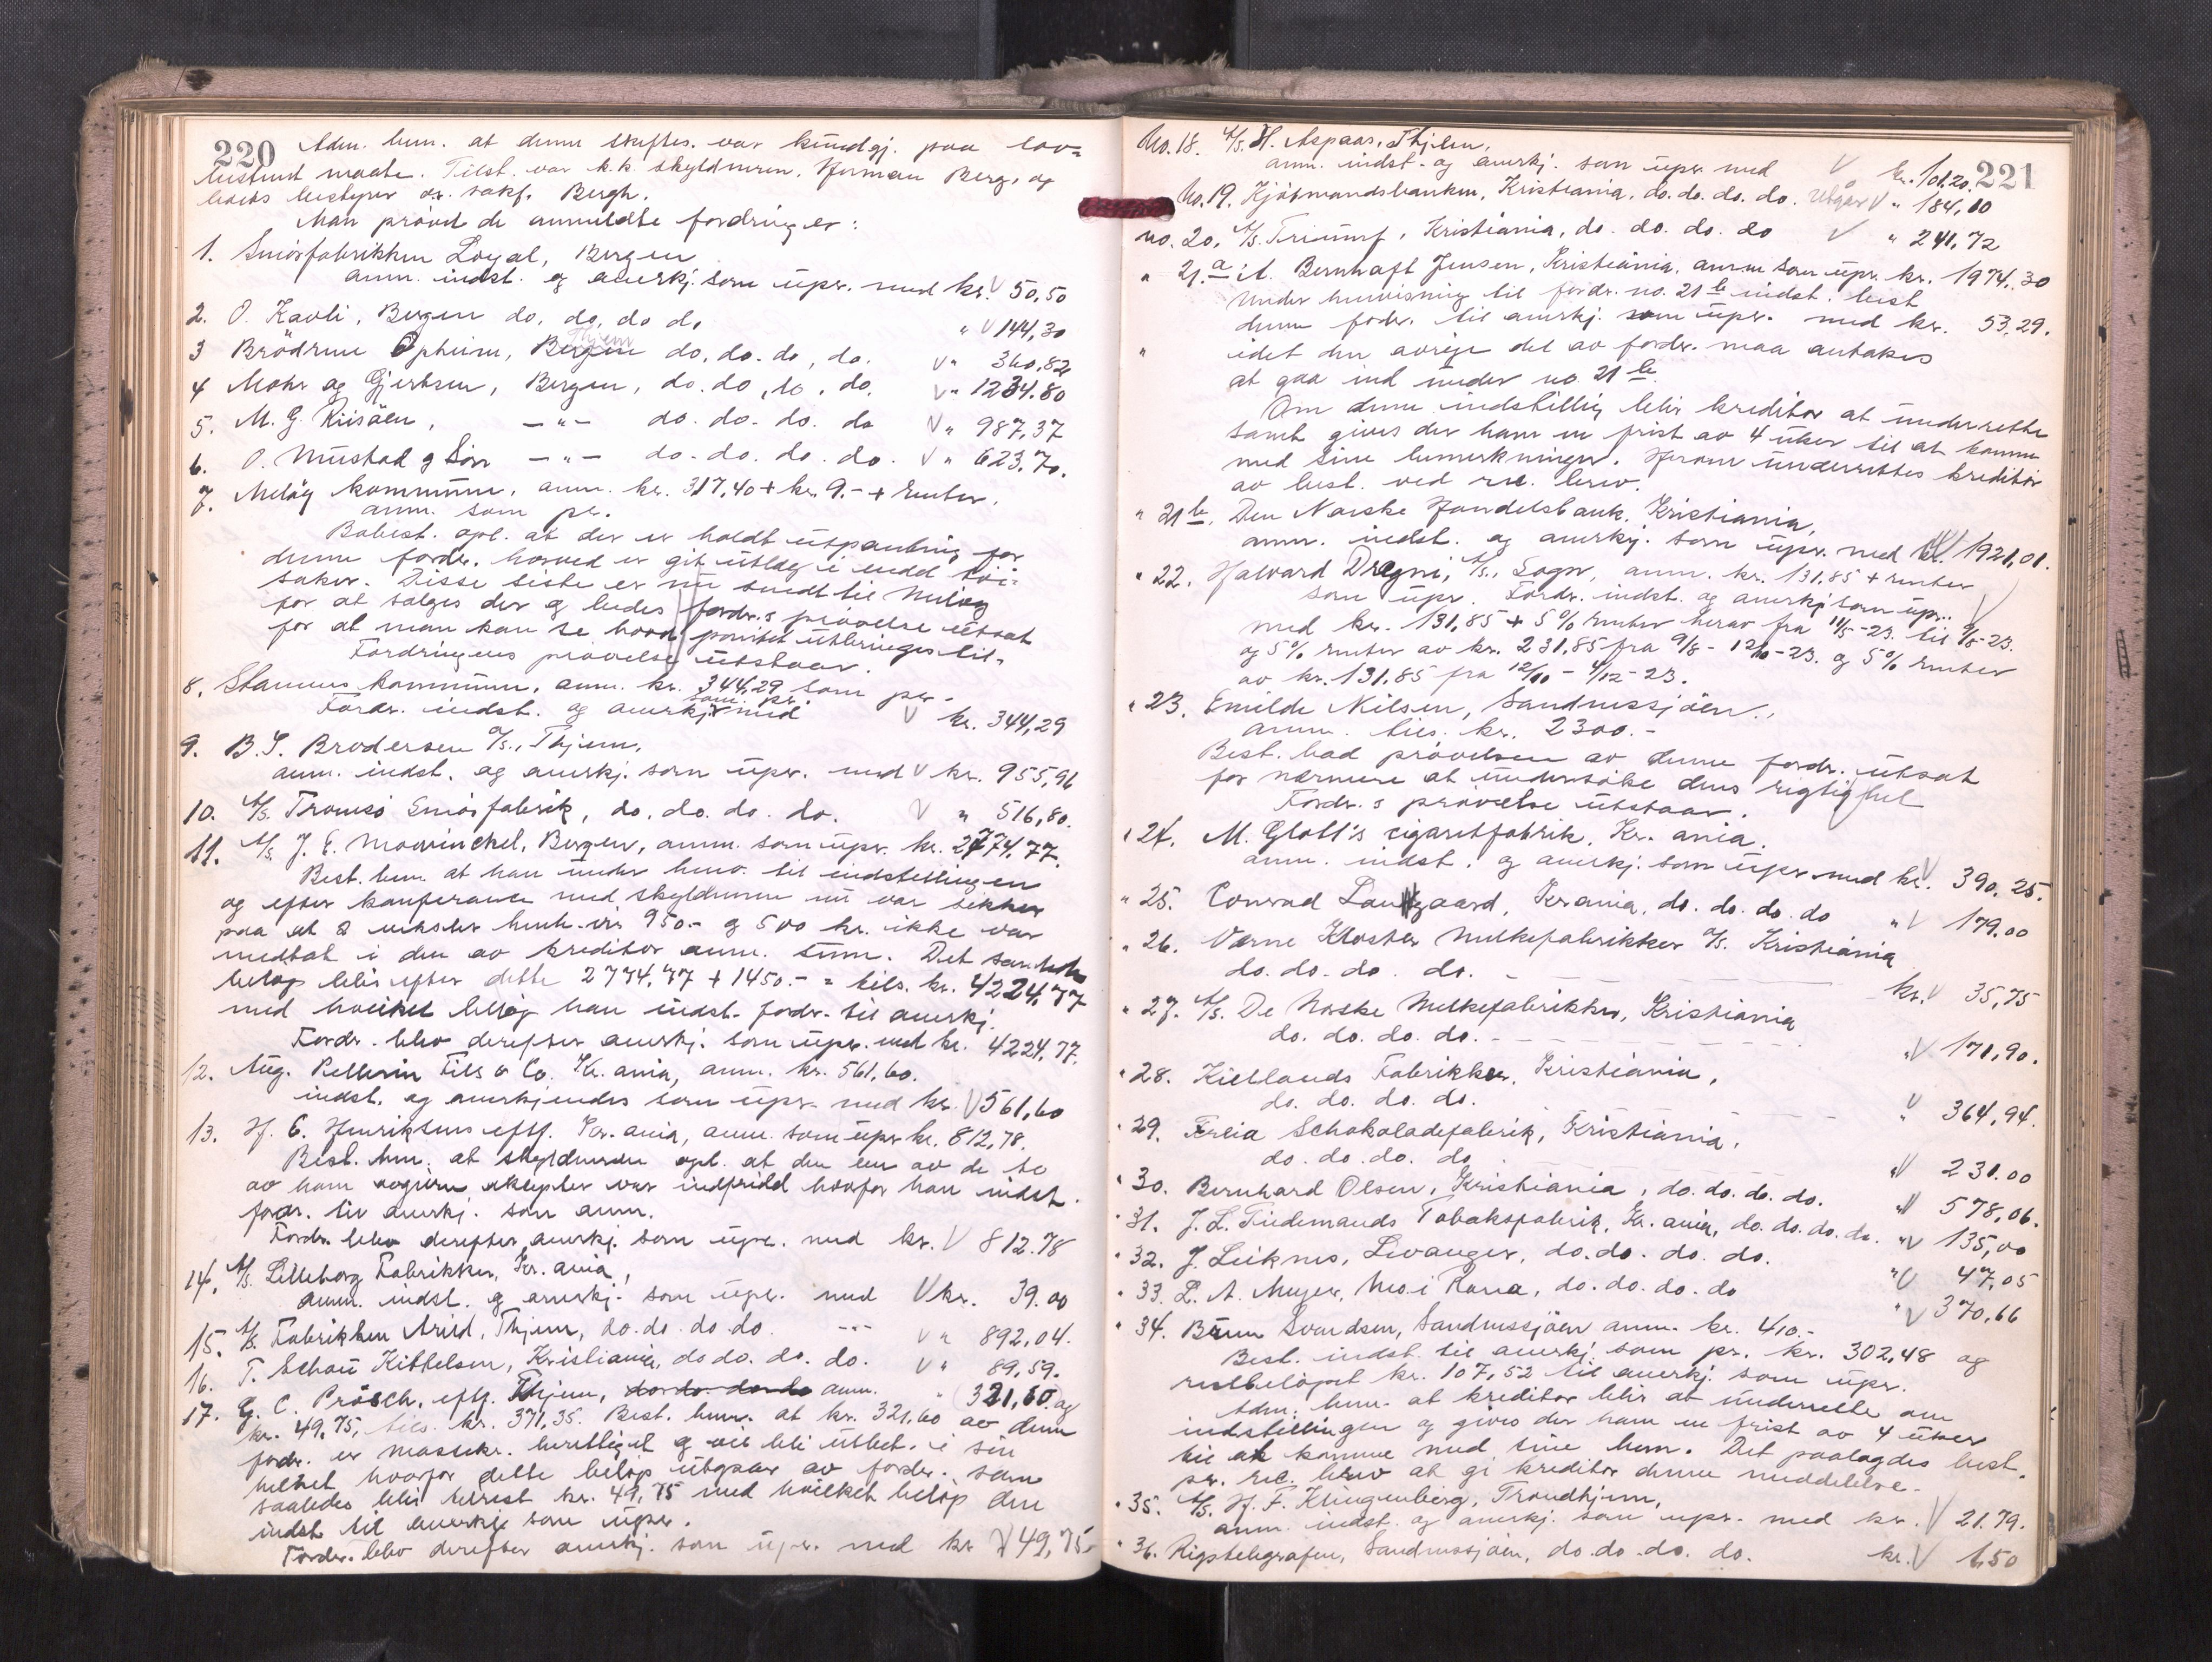 220
Adm. bem. at denne skiftes. var kundgj. paa lov=
bestemt maate. Tilst. var k.k. skyldneren. Herman Berg, og
boets bestyrer or. sakf. Bergh.
Man prøved de anmeldte fordringer:
1. Smörfabrikken Loyal, Bergen
anm. indst. og anerkj. som upr. med kr. 50,50
2. O. Kavli, Bergen do, do, do do " 144,30
3 Brödrene Opheim, Bergen Thjem do. do. do, do. " 360,82
4 Mohr og Gjertsen, Bergen, do. do, do, do. " 1234.80
5. M. G. Riisöen, —"— do. do. do. do " 987,37
6. O. Mustad g Sön —"— do. do. do. do. " 623.70.
7. Melöy kommune, anm. kr. 317,40 + kr. 9.- + renter.
anm. som pr.
Bobest. opl. at der er holdt utpantning for
denne fordr. hvorved er git utlæg i endel tøi-
saker. Disse siste er nu sendt til Melöy
for at sælges der g bedes fordr.s prøvelse utsat
for at man kan se hvad pantet utbringes til.
Fordringens prøvelse utstaar.
8. Stamnes kommune. anm. kr. 344,29 som pr.
Fordr. indst. og anerkj. som pr. med kr. 344,29
9. B. S. Brodersen A/s., Thjem,
anm. indst. og anerkj. som upr. med kr. 955,96
10. A/s. Tromsö Smörfabrik, do. do. do. do. " 516,80.
11. A/s J. E. Mowinckel, Bergen, anm. som upr. kr. 2774,77.
Best. bem. at han under henv. til indstillingen
og efter konferance med skyldneren nu var sikker
paa at 2 veksler henh.vis 950.- g 500 kr. ikke var
medtat i den av kreditor anm. sum. Det samlede
belöp blir efter dette 2774,77 + 1450.- = tils. kr. 4224,77
med hvilket belöp han indst. fordr. til anerkj.
Fordr. blev derefter anerkj. som upr. med kr. 4224,77.
12. Aug. Pellerin Fils & Co. Kr.ania, anm. kr. 561,60.
indst. og anerkjendes som upr. med kr. 561,60
13. H. C. Henriksens eftf. Kr.ania, anm. som upr kr. 812,78.
Best. bem. at skyldneren opl. at den ene av de to
av ham avgivne aksepter var indfridd hvorfor han indst.
fordr. til anerkj. som anm.
Fordr. blev derefter anerkj. som upr. med kr. 812.78
14. A/s. Lilleborg Fabrikker, Kr.ania,
anm. indst. g anerkj. som upr. med kr. 39.00
15. A/s. Fabrikken Arild, Thjem, do. do. do. do. --- " 892,04.
16. T. Schou Kittelsen, Kristiania, do do. do. do. " 89,59.
17. G. C. Prösch, eftf. Thjem, do do. do do anm. " 321,60 og
kr. 49,75, tils. kr. 371,35. Best. bem. at kr. 321,60 av denne
fordr. er massekr. berettiget g vil bli utbet. i sin
helhet hvorfor dette belöp utgaar av fordr. som
saaledes blir tilrest kr. 49,75 med hvilket belöp den
indst til anerkj. som upr.
Fordr. blev derefter anerkj. som upr. med kr 49,75-
221
No. 18. A/s. H. Aspaas, Thjem,
anm. indst. og anerkj. som upr med kr. 101,20
No. 19. Kjöbmandsbanken, Kristiania, do. do. do. do. Utgår " 184,10
no. 20. A/s. Triumf, Kristiania, do. do. do. do " 241,72
" 21.a it. Bernhaft Jensen, Kristiania, anm som upr. kr. 1974.30
Under henvisning til fordr. no. 21 b indst. best
denne fordr. til anerkj. som upr. med kr. 53,29.
" idet den övrige del av fordr. maa antakes
at gaa ind under no. 21 b.
Om denne indstilling blir kreditor at underrette
samt gives der ham en frist av 4 uker til at komme
med sine bemerkninger. Herom underrettes kreditor
av best. ved rec. brev.
" 21 b. Den Norske Handelsbank, Kristiania,
anm. indst. og anerkj. som upr. med kr. 1921,01.
" 22. Halvard Dregni, A/s., Sogn, anm. kr. 131,85 + renter
som upr. Fordr. indst. og anerkj som upr.
med kr. 131,85 + 5% renter herav fra 11/5-23. til 9/8-23.
og 5% renter av kr. 231,85 fra 9/8 - 12/10-23. og 5% renter
av kr. 131,85 fra 12/10 - 4/12-23.
" 23. Emilde Nilsen, Sandnessjöen.,
anm. tils. kr. 2300.-
Best. bad prøvelsen av denne fordr. utsat
for nærmere at undersöke dens rigtighet
Fordr.s prøvelse utstaar.
" 24. M. Glott's cigaretfabrik, Kr.ania.
anm. indst. og anerkj. som upr med kr. 390,25.
" 25. Conrad Langaard, Kr.ania, do. do. do. do " 179.00
" 26. Værne Kloster Melkefabrikker A/s. Kristiania
do. do. do. do. - kr. 35,75
" 27. A/s. De Norske Melkefabrikker, Kristiania
do. do. do. do. - " 171,90.
" 28. Kiellands Fabrikker, Kristiania,
do. do. do. do. " 364,94.
" 29. Freia Schokoladefabrik, Kristiania,
do. do. do. do " 231.00
" 30. Bernhard Olsen, Kristiania, do. do. do. do. " 578,06.
" 31. J. L. Tiedemands Tobaksfabrik, Kr.ania, do. do. do. do. " 135,00
" 32. J. Leiknes, Levanger, do. do. do. do. " 47,05
" 33. L. A. Meyer, Mo i Rana, do. do. do. do " 370,66
" 34. Brun Svendsen, Sandnessjöen anm. kr. 410.-
Best. indst. til anerkj. som pr. kr. 302,48 og
restbelöpet kr. 107,52 til anerkj. som upr.
Adm. bem. at kreditor blir at underrette om
indstillingen og gives der ham en frist av 4 uker
til at komme med sine bem. Det paalagdes best.
pr. rec. brev at gi kreditor denne meddelelse.
" 35. A/s. H. F. Klingenberg, Trondhjem,
anm. indst. og anerkj. som upr. med kr. 21.79.
" 36. Rigstelegrafen, Sandnessjöen, do. do. do. do. kr. 1,50